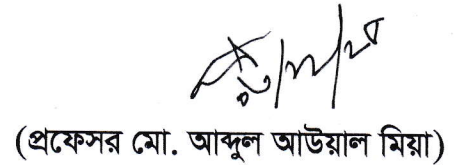 (প্রফেসর মো. আব্দুল আউয়াল মিয়া)